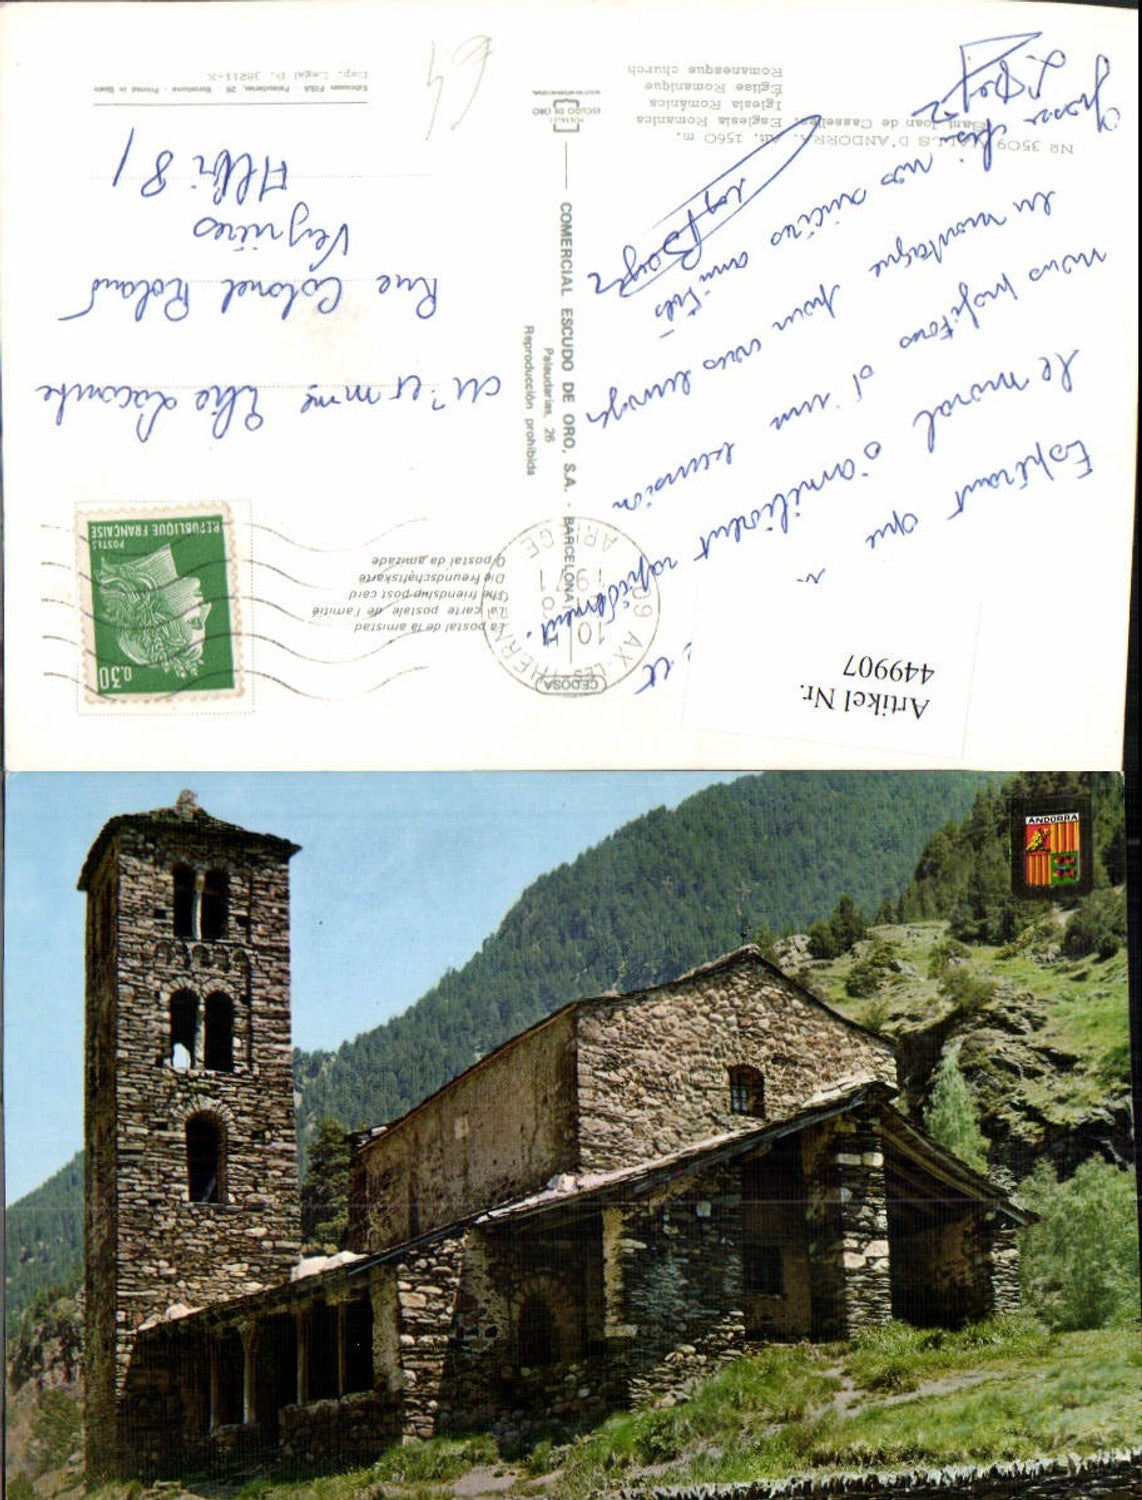 Nº 3509 VALLS D'ANDORRA. Alt. 1560 m.
Sant Joan de Casselles. Esglesia Romanica
Iglesia Románica
Église Romanique
Romanesque church
POSTALES
ESCUDO DE ORO
COMERCIAL ESCUDO DE ORO, S.A. - BARCELONA
Palaudarias, 26
Reproducción prohibida
CEDOSA
Ediciones FISA - Palaudarias, 26 - Barcelona - Printed in Spain
Dep. Legal B. 38211-X
La postal de la amistad
La carte postale de l'amitié
The friendship post card
Die Freundschaftskarte
O postal da amizade
09 AX-LES-THERMES
10
ARIEGE
0,30
POSTES
REPUBLIQUE FRANÇAISE
Artikel Nr.
449907
Espérant que
le moral s'améliorent rapidement.
nous profitons d'une excursion
en montagne pour vous envoyer
nos sincères amitiés
Mr et Mme Elie Lacombe
Rue Colonel Roland
Veyrières
Albi 81
ANDORRA